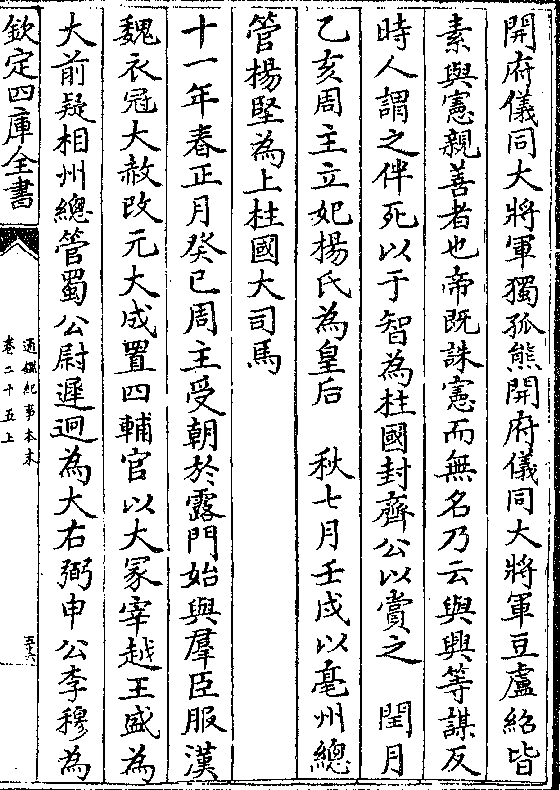 開府儀同大將軍獨孤熊開府儀同大將軍豆盧紹皆
素與憲親善者也帝既誅憲而無名乃云與興等謀反
時人謂之伴死以于智為柱國封齊公以賞之　閏月
乙亥周主立妃楊氏為皇后　秋七月壬戌以亳州總
管楊堅為上柱國大司馬
十一年春正月癸巳周主受朝於露門始與羣臣服漢
魏衣冠大赦改元大成置四輔官以大冢宰越王盛為
大前疑相州總管蜀公尉遲迥為大右弼申公李穆為
欽定四庫全書
通鑑紀事本末
卷二十五上
五六